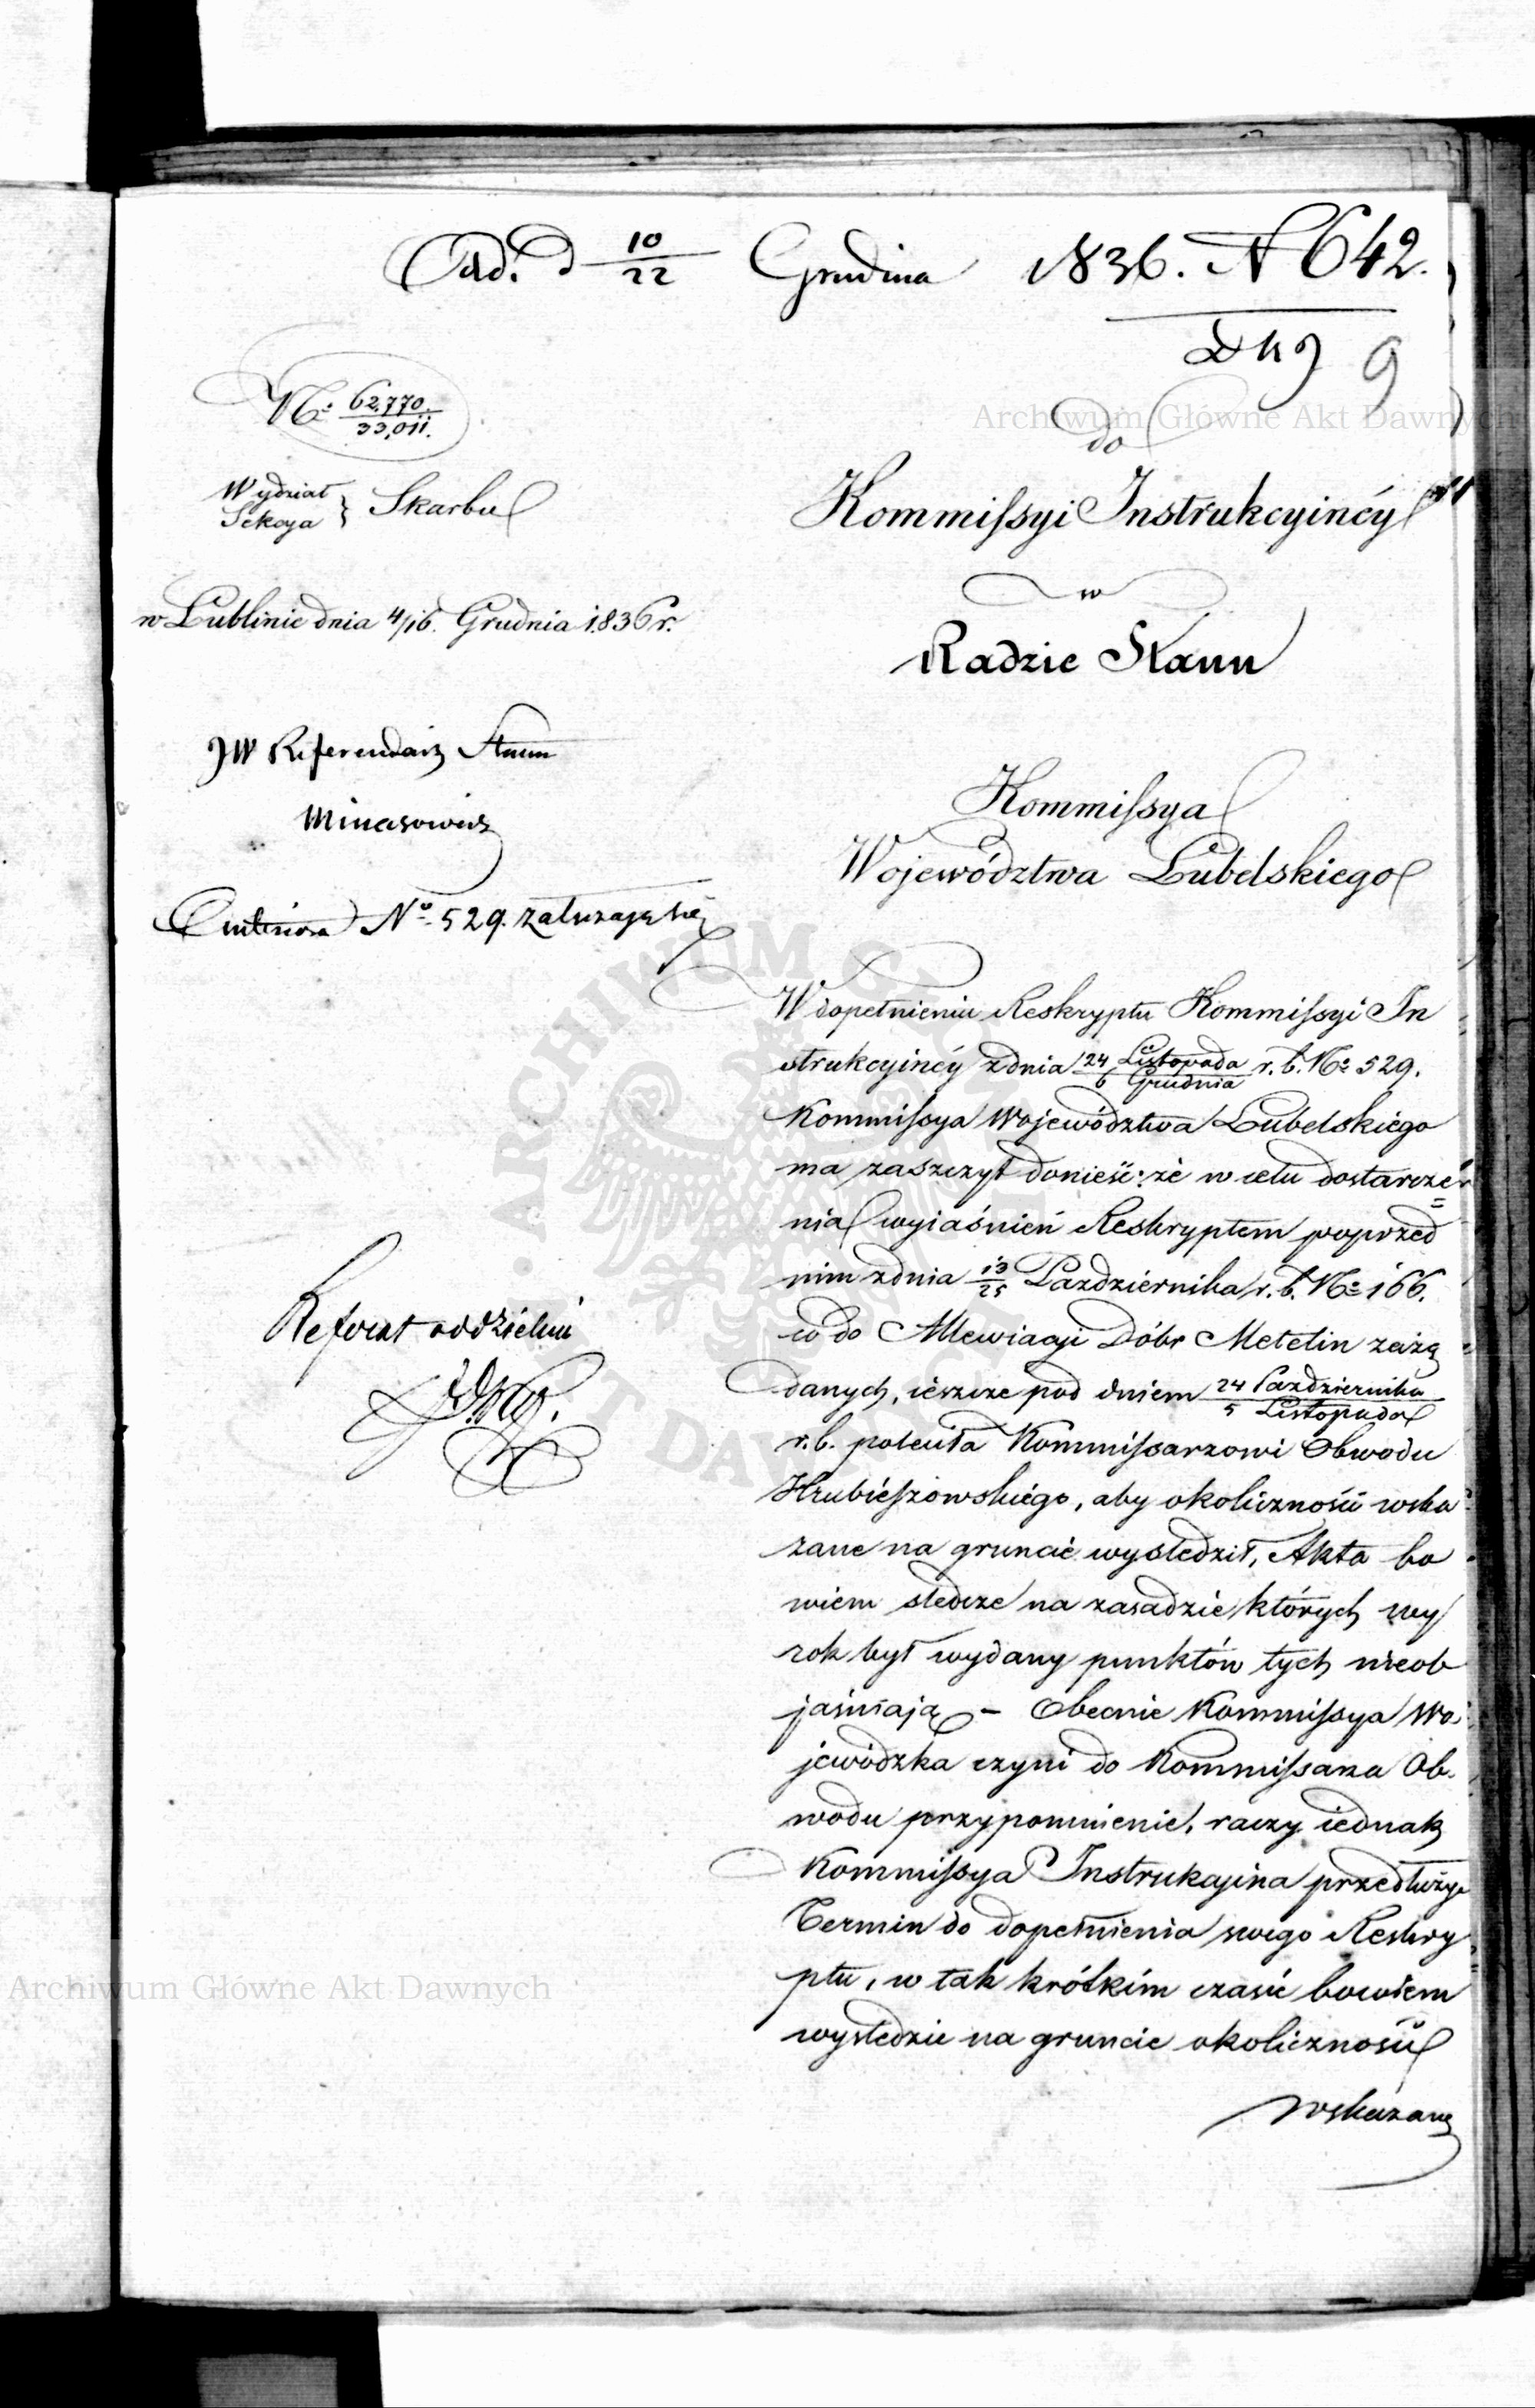 Odd. d 10/22 Grudnia 1836. N 642.
9
No 62,770./33,011.
Wydział
Sekcya } Skarbu
w Lublinie dnia 4/16. Grudnia 1836 r.
JW Referendarz Stanu
Minasowicz
No 529. załączając się
Referat oddzielny
do
Kommissyi Instrukcyinéy
w
Radzie Stanu
Kommissya
Województwa Lubelskiego
W dopełnieniu Reskryptu Kommissyi In
strukcyinéy z dnia 24 Listopada/6 Grudnia r. b. No 529.
Kommissya Województwa Lubelskiego
ma zaszczyt donieść: że w celu dostarcze=
nia wyiaśnień Reskryptem poprzed
nim z dnia 13/25 Pazdziernika r. b. No 166.
co do Allewiacyi Dóbr Metelin zażą
danych, ieszcze pod dniem 24 Pazdziernika/5 Listopada
r. b. poleciła Kommissarzowi Obwodu
Hrubieszowskiego, aby okoliczności wska
zane na gruncie wyśledził, Akta bo
wiem śledcze na zasadzie których wy
rok był wydany punktów tych nieob
jaśniają – Obecnie Kommissya Wo
jewódzka czyni do Kommissarza Ob.
wodu przypomnienie, raczy iednak
Kommissya Instrukcyina przedłużyć
Termin do dopełnienia swego Reskry
ptu, w tak krótkim czasie bowiem
wyśledzić na gruncie okoliczności
wskazane
Archiwum Główne Akt Dawnych
Archiwum Główne Akt Dawnych